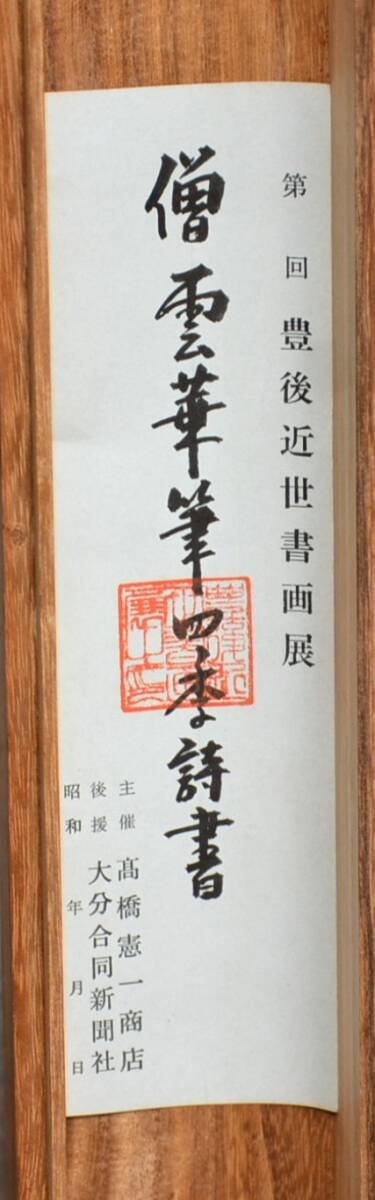 第　回 豊後近世書画展
僧雲華筆四季詩書
主催 髙橋憲一商店
後援 大分合同新聞社
昭和　年　月　日